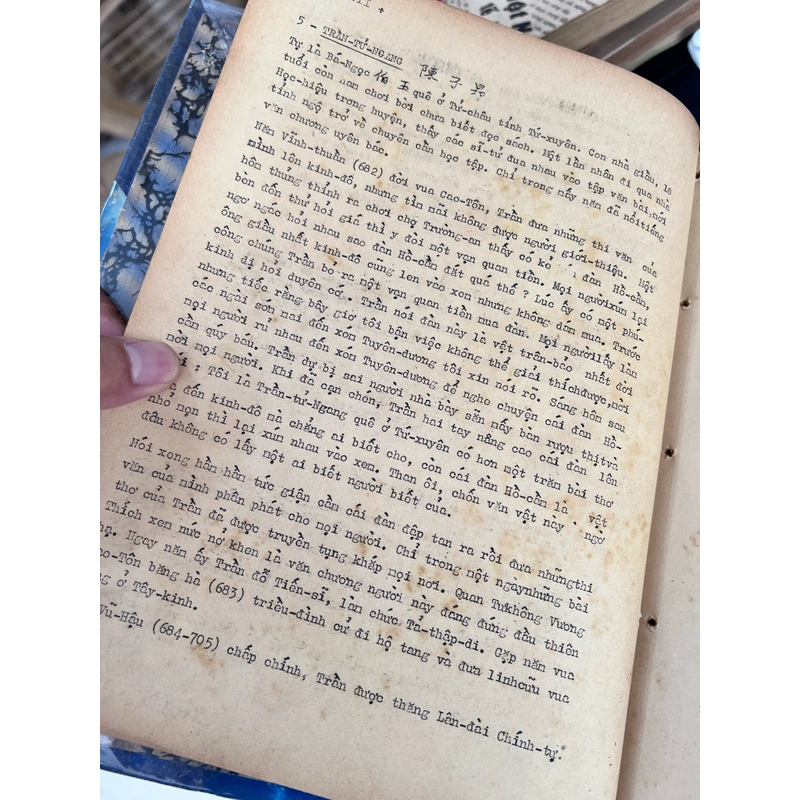 III +
5 - TRẦN-TỬ-NGANG 陳子昂
Tự là Bá-Ngọc 伯玉 quê ở Tử-châu tỉnh Tứ-xuyên. Con nhà giầu, 18
tuổi còn ham chơi bời chưa biết đọc sách. Một lần nhân đi qua nhà
Học-hiệu trong huyện, thấy các sĩ-tử đua nhau vào tập văn bài, nói
tỉnh ngộ trở về chuyên cần học tập. Chỉ trong mấy năm đã nổi tiếng
văn chương uyên bác.
Năm Vĩnh-thuần (682) đời vua Cao-Tôn, Trần đưa những thi văn của
mình lên kinh-đô, nhưng tìm mãi không được người giới-thiệu. Một
hôm thủng thỉnh ra chơi chợ Trường-an thấy có kẻ đàn Hồ-cần,
bèn đến thử hỏi giá thì y đòi một vạn quan tiền. Mọi người xún lại
ngơ ngác hỏi nhau sao đàn Hồ-cần đắt quá thế ? Lúc ấy có một phú-
ông giầu nhất kinh-đô cũng len vào xem nhưng không dám mua. Trước
công chúng Trần bỏ ra một vạn quan tiền mua đàn. Mọi người lấy làm
kinh dị hỏi duyên cớ. Trần nói đàn này là vệt trân-bảo nhất đời
nhưng tiếc rằng bây giờ tôi bận việc không thể giải thích được, mời
các ngài sớm mai đến xóm Tuyên-dương tôi xin nói rõ. Sáng hôm sau
mọi người rủ nhau đến xóm Tuyên-dương để nghe chuyện cái đàn Hồ-
cần quý báu. Trần dự bị sai người nhà bày sẵn mấy bàn rượu thịt và
mời mọi người. Khi đã cạn chén, Trần hai tay nâng cao cái đàn lên
: Tôi là Trần-tử-Ngang quê ở Tứ-xuyên có hơn một trăm bài thơ
đến kinh-đô mà chẳng ai biết cho, còn cái đàn Hồ-cần là vật
nhỏ mọn thì lại xún nhau vào xem. Than ôi, chốn văn vật này ngơ
đầu không có lấy một ai biết người biết của.
Nói xong hằn hằn tức giận cầm cái đàn đập tan ra rồi đưa những thi
văn của mình phân phát cho mọi người. Chỉ trong một ngày những bài
thơ của Trần đã được truyền tụng khắp mọi nơi. Quan Tư không Vương
Thích xem nức nở khen là văn chương người này đáng đứng đầu thiên
hạ. Ngay năm ấy Trần đỗ Tiến-sĩ, làm chức Tả-thập-di. Gặp năm vua
Cao-Tôn băng hà (683) triều-đình cử đi hộ tang và đưa linh cữu vua
ở Tây-kinh.
Vũ-Hậu (684-705) chấp chính, Trần được thăng Lân-đài Chính-tự.